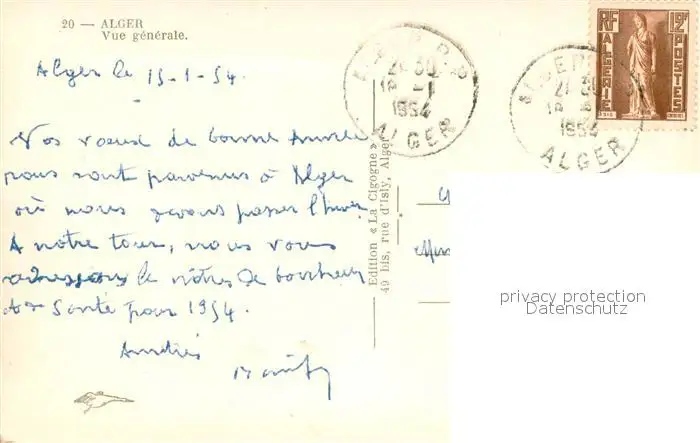 20 — ALGER
Vue générale.
Alger le 15-1-54.
Nos voeux de bonne Année
nous sont parvenus à Alger
où nous avons passer l'hiver
A notre tour, nous vous
adressons les nôtres de bonheur
et Santé pour 1954.
Andrée
Edition « La Cigogne »
49 bis, rue d'Isly, Alger
21 30
1954
ALGER
21 30
1954
ALGER
RF
12F
ALGERIE
POSTES
privacy protection
Datenschutz